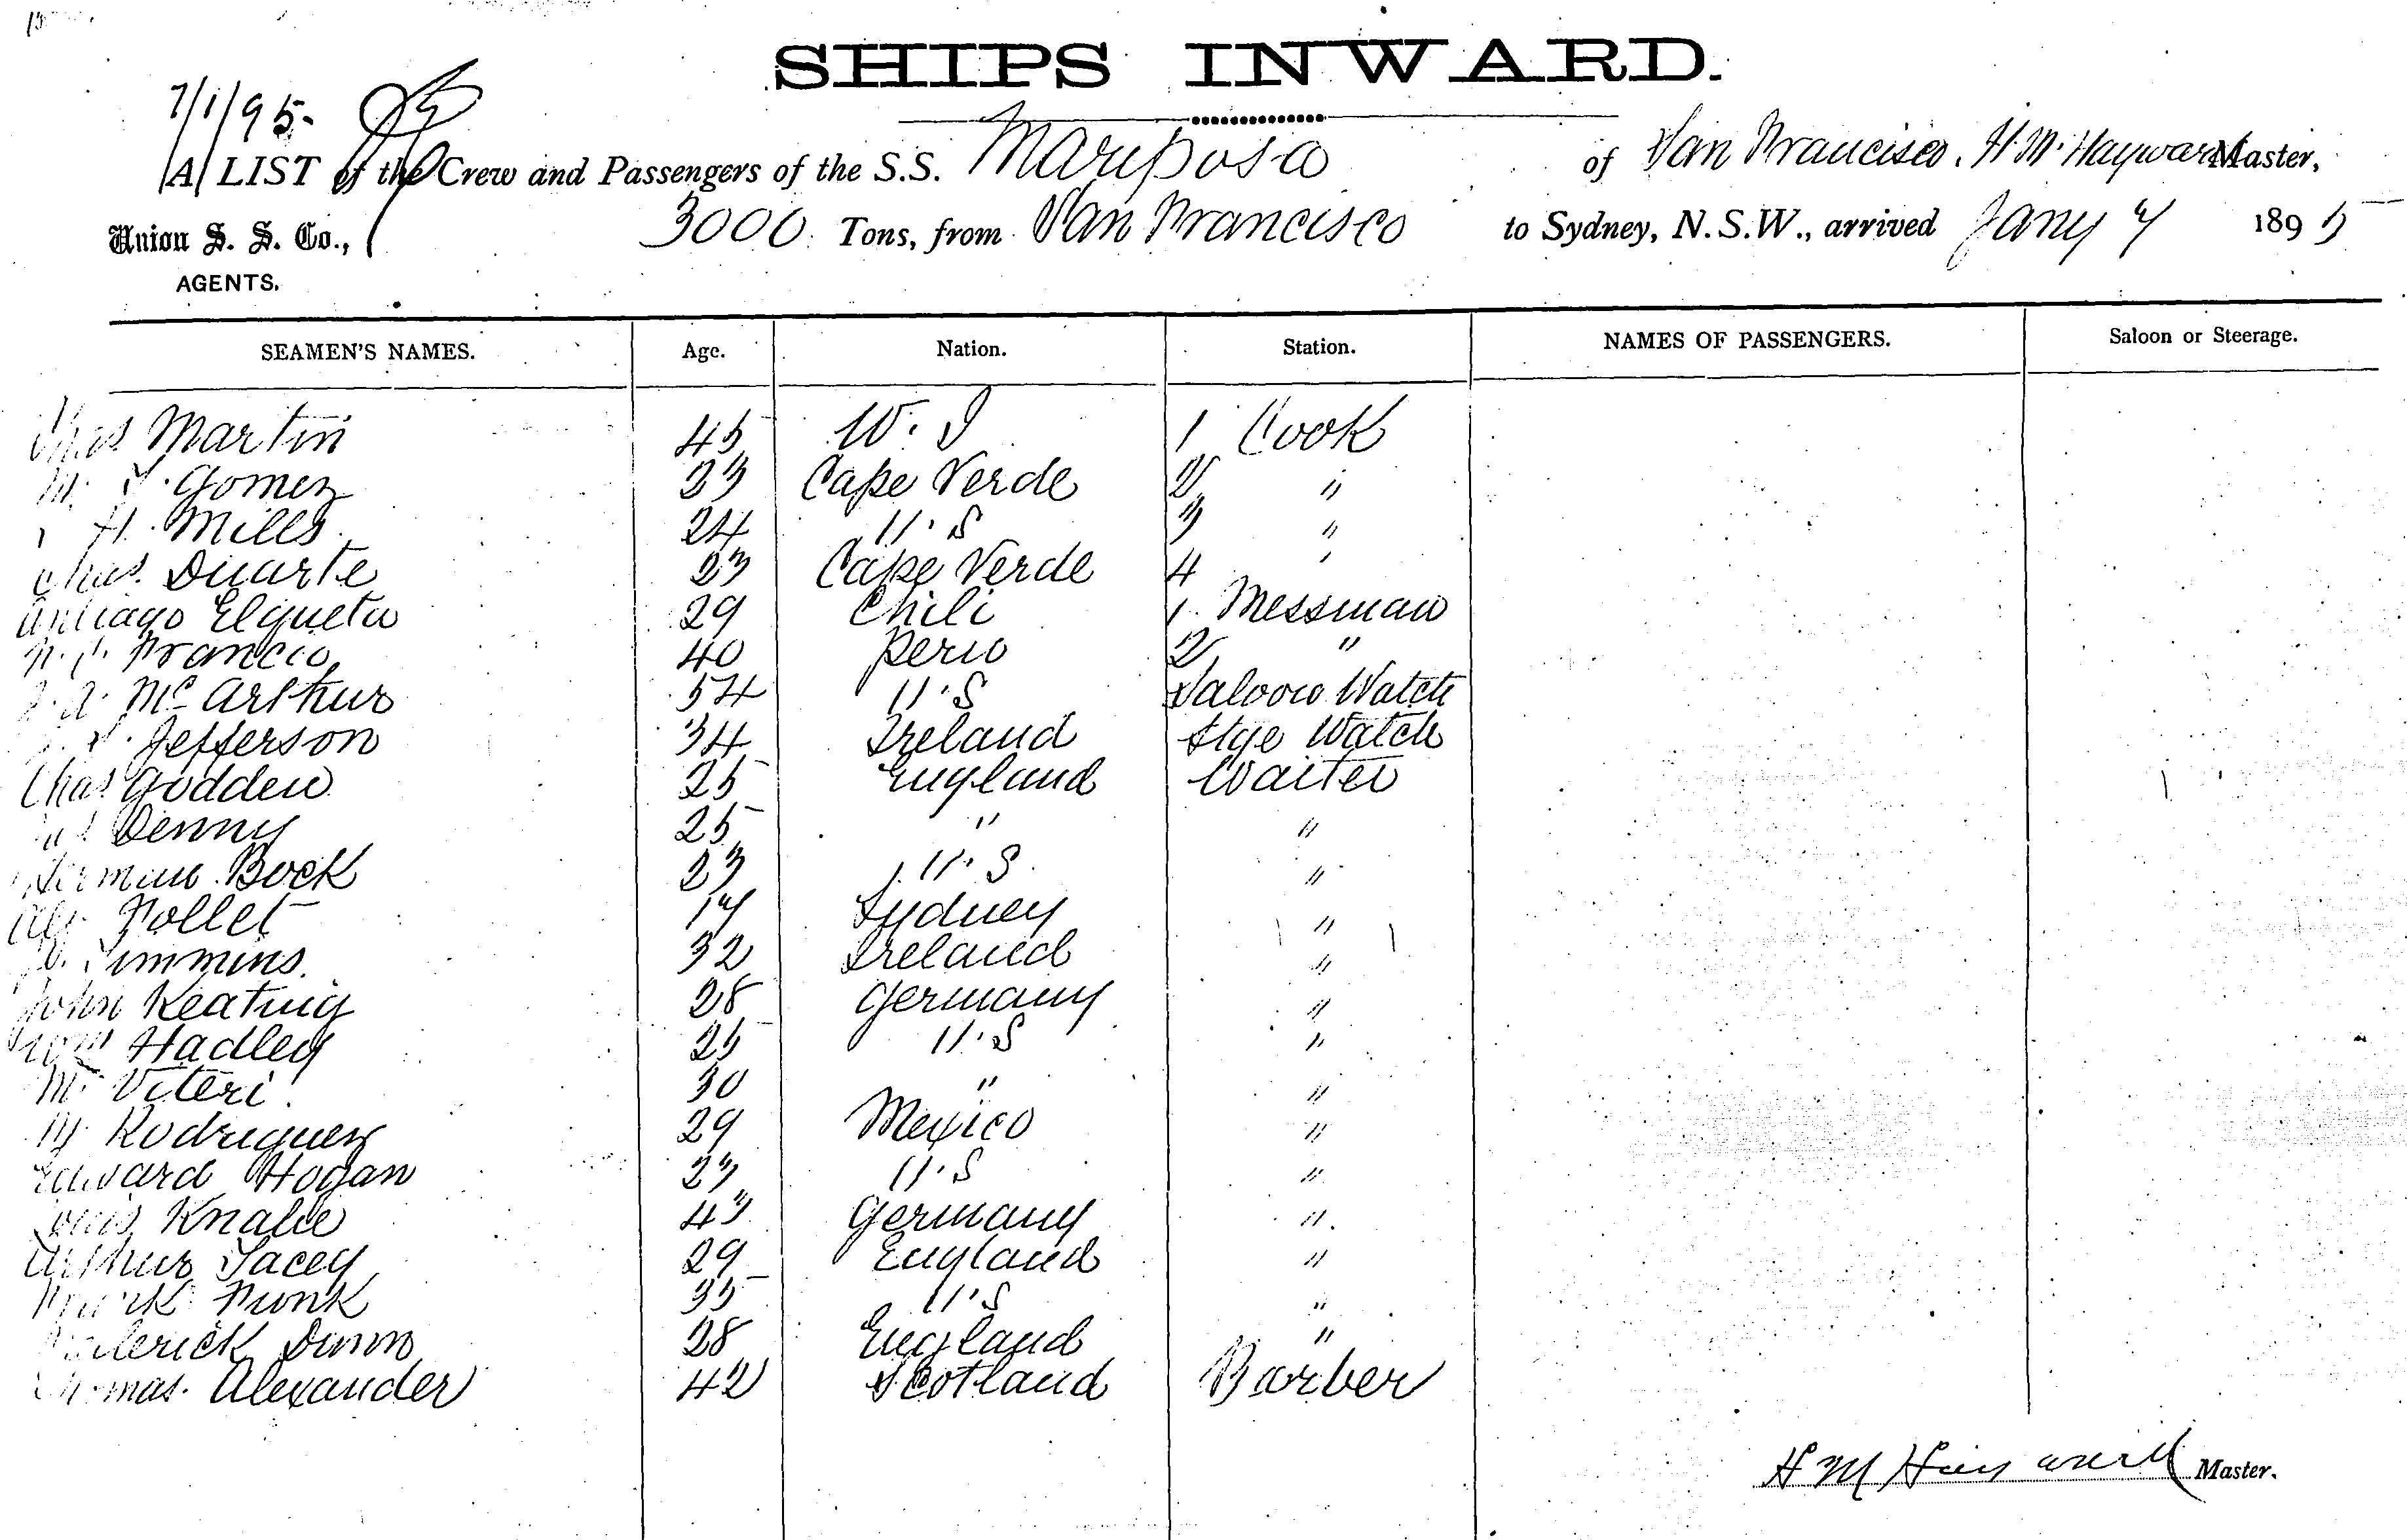 SHIPS INWARD.
7/1/95.
A LIST of the Crew and Passengers of the S.S. Mariposa of San Francisco, H. M. Hayward Master,
Union S. S. Co., 3000 Tons, from San Francisco to Sydney, N.S.W., arrived Jany 7 1895
AGENTS.
SEAMEN'S NAMES. Age. Nation. Station. NAMES OF PASSENGERS. Saloon or Steerage.
Chas Martin 45 W. I 1 Cook
M. Gomez 33 Cape Verde 2 "
H. Mills 24 U.S 3 "
Chas. Duarte 23 Cape Verde 4 "
Elqueta 29 Chili 1. Messman
Francio 40 Peru 2 "
A. Mc Arthur 54 U.S Saloon Watch
Jefferson 34 Ireland Stge Watch
Chas Godden 25 England Waiter
Denny 25 " "
Herman Bock 23 U.S. "
Follet 17 Sydney "
Timmins. 32 Ireland "
John Keating 28 Germany "
Hadley 25 U.S "
M. Viteri 30 " "
M. Rodriguez 29 Mexico "
Edward Hogan 23 U.S "
Louis Knabe 43 Germany "
Arthur Tacey 29 England "
Frank Funk 35 U.S "
Dunn 28 England "
Thomas. Alexander 42 Scotland Barber
H M Hayward Master.